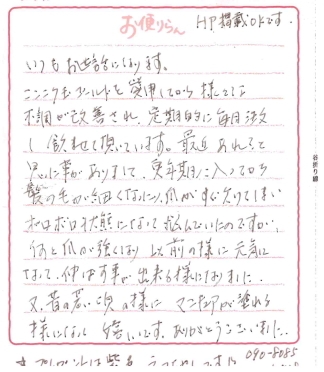 お便りらん HP掲載OKです.
いつもお世話になります。
を愛用してから様々な
不調が改善され、定期的に毎回注文
し飲ませて頂いています。最近あれっと
思う事がありまして、更年期に入ってから
髪の毛が細くなったり、爪がすぐ欠けてしまい
ボロボロ状態になって悩んでいたのですが、
何と爪が強くなり以前の様に元気に
なって、伸ばす事が出来る様になりました.
又、昔の若い頃の様に マニキュアが塗れる
様になって嬉しいです。ありがとうございました.
プレゼントは
090-8085
谷折り線